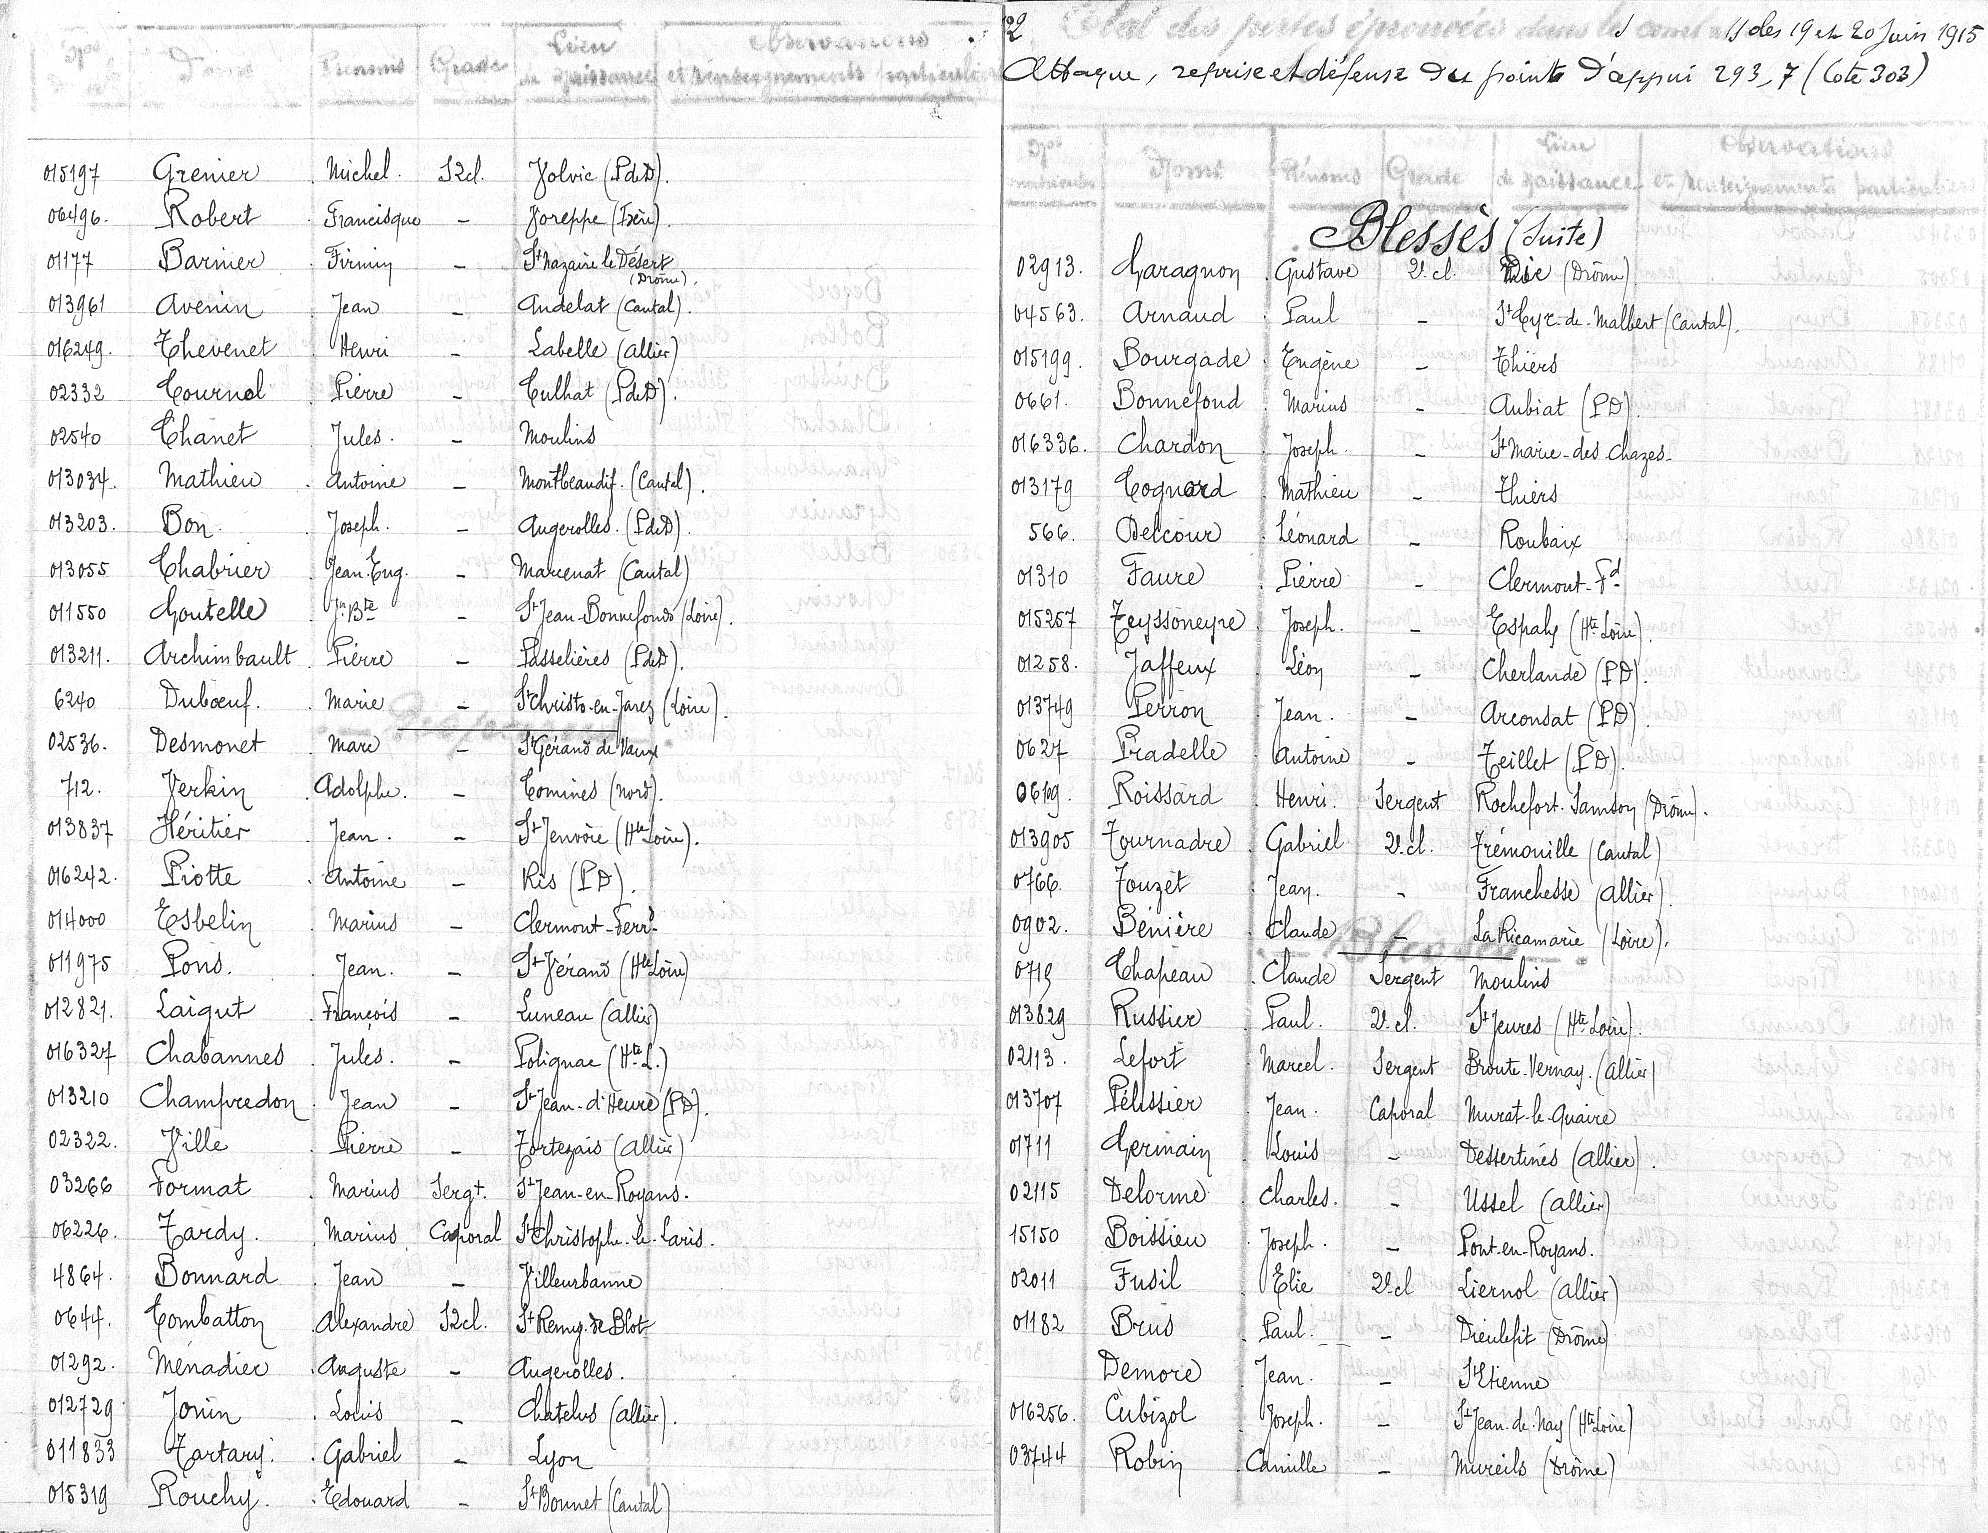 Nos Noms Prénoms Grade Lieu de Naissance Observations et renseignements particuliers
015197 Grenier Michel. S2cl. Volvic (PdeD).
06496. Robert Francisque - Voreppe (Isère).
01177 Barnier Firmin - St Nazaire le Désert (Drôme).
013961 Avenin Jean - Andelat (Cantal).
016249. Thevenet Henri - Labelle (Allier)
02332 Tournol Pierre - Culhat (PdeD).
02540 Chanet Jules. - Moulins
013034. Mathieu Antoine - Montbeaudif. (Cantal).
013203. Bon Joseph. - Augerolles. (PdeD).
013055 Chabrier Jean Eug. - Marcenat (Cantal)
011550 Goutelle Jn Bte - St Jean-Bonnefonds (Loire).
013211. Archimbault Pierre - Passelières (PdeD).
6240 Duboeuf. Marie - St Christo-en-Jarez (Loire).
02536. Desmonet Marc - St Gérand de Vaux
712. Verkin Adolphe. - Comines (Nord).
013837 Héritier Jean. - St Jenvoire (Hte Loire).
016242. Piotte Antoine - Ris (PD).
014000 Esbelin Marius - Clermont-Ferrd
011975 Pons. Jean. - St Vérand (Hte Loire)
012821. Laigut François - Luneau (Allier)
016327 Chabannes Jules. - Polignac (Hte L.)
013210 Champredon Jean - St Jean-d'Heurs (PD).
02322. Ville Pierre - Tortezais (Allier)
03266 Format Marius Sergt. St Jean-en-Royans.
06226. Tardy. Marius Caporal St Christophe-le-Laris.
4864. Bonnard Jean - Villeurbanne
0644. Combatton Alexandre S2cl. St Remy de Blot
01292. Ménadier Auguste - Augerolles.
012729 Jonin Louis - Chatelus (Allier).
011833 Tartary. Gabriel - Lyon
015319 Rouchy. Edouard - St Bonnet (Cantal)
22 Etat des pertes éprouvées dans les combats des 19 et 20 Juin 1915
Attaque, reprise et défense du point d'appui 293,7 (Cote 303)
Nos matricules Noms Prénoms Grade Lieu de naissance Observations et renseignements particuliers
Blessés (Suite)
02913. Garagnon Gustave 2e cl. Die (Drôme)
04563. Arnaud Paul - St Cyr-de-Malbert (Cantal).
015199. Bourgade Eugène - Thiers
0661. Bonnefond Marius - Aubiat (PD)
016336. Chardon Joseph. - St Marie-des-Chazes-
013179 Cognard Mathieu - Thiers
566. Delcour Léonard - Roubaix
01310 Faure Pierre - Clermont-Fd
015257 Teyssoneyre Joseph. - Espaly (Hte Loire).
01258. Jaffeux Léon - Cherlande (PD).
013749 Perron Jean. - Arconsat (PD).
0627 Pradelle Antoine - Teillet (PD).
0619. Roissard Henri. Sergent Rochefort-Samson (Drôme).
013905 Tournadre Gabriel 2e cl. Trémouille (Cantal)
0766. Touzet Jean. - Franchesse (Allier).
0902. Bénière Claude - La Ricamarie (Loire).
0719 Chapeau Claude Sergent Moulins
013829 Russier Paul. 2e cl. St Jeures (Hte Loire).
02113. Lefort Marcel. Sergent Broute-Vernay. (Allier)
013707 Pélissier Jean. Caporal Murat-le-Quaire
01711 Germain Louis - Dessertines (Allier).
02115 Delorme Charles. - Ussel (Allier)
15150 Boissieu Joseph. - Pont-en-Royans.
02011 Fusil Elie 2e cl Liernol (Allier)
01182 Brus Paul. - Dieulefit (Drôme)
Demore Jean. - St Etienne
016256. Cubizol Joseph. - St Jean-de-Nay (Hte Loire)
03744 Robin Camille - Mureils (Drôme)